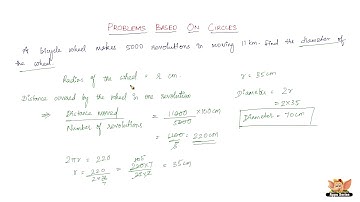 PROBLEMS BASED ON CIRCLES
A Bicycle wheel makes 5000 revolutions in moving 11 km. Find the diameter of
the wheel
Radius of the wheel = r cm.
Distance covered by the wheel in one revolution
⇒ Distance moved / Number of revolutions = 11000 / 5000 × 100 cm
= 1100 / 5 = 220 cm
2πr = 220
r = 220 / 2×π = 220×7 / 22×2 = 35 cm
r = 35 cm
Diameter = 2r
= 2×35
Diameter = 70 cm